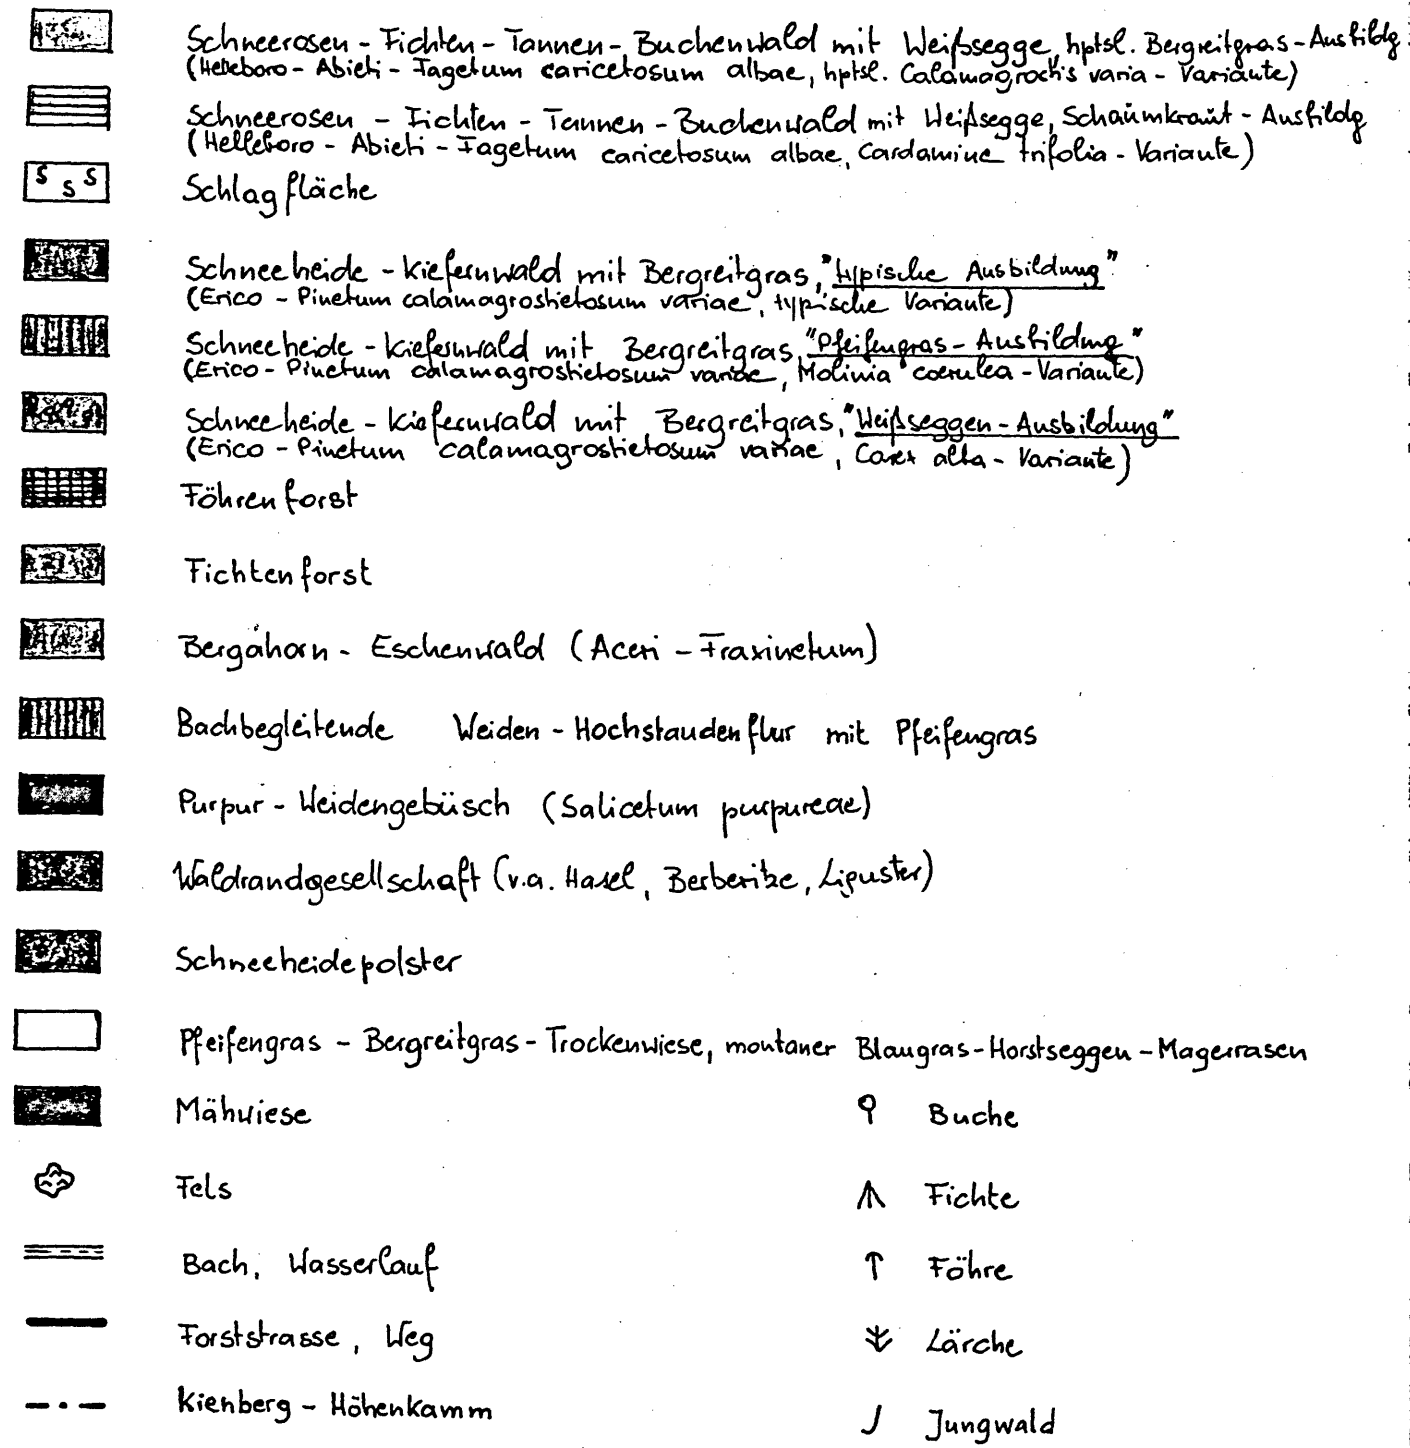 Schneerosen - Fichten - Tannen - Buchenwald mit Weißsegge, hptsl. Bergreitgras - Ausbildg
(Helleboro - Abieti - Fagetum caricetosum albae, hptsl. Calamagrostis varia - Variante)
Schneerosen - Fichten - Tannen - Buchenwald mit Weißsegge, Schaumkraut - Ausbildg
(Helleboro - Abieti - Fagetum caricetosum albae, Cardamine trifolia - Variante)
S S S
Schlagfläche
Schneeheide - Kiefernwald mit Bergreitgras, "typische Ausbildung"
(Erico - Pinetum calamagrostietosum variae, typische Variante)
Schneeheide - Kiefernwald mit Bergreitgras, "Pfeifengras - Ausbildung"
(Erico - Pinetum calamagrostietosum variae, Molinia coerulea - Variante)
Schneeheide - Kiefernwald mit Bergreitgras, "Weißseggen - Ausbildung"
(Erico - Pinetum calamagrostietosum variae, Carex alba - Variante)
Föhrenforst
Fichtenforst
Bergahorn - Eschenwald (Aceri - Fraxinetum)
Bachbegleitende Weiden - Hochstaudenflur mit Pfeifengras
Purpur - Weidengebüsch (Salicetum purpureae)
Waldrandgesellschaft (v.a. Hasel, Berberitze, Liguster)
Schneeheidepolster
Pfeifengras - Bergreitgras - Trockenwiese, montaner Blaugras - Horstseggen - Magerrasen
Mähwiese
Buche
Fels
Fichte
Bach, Wasserlauf
Föhre
Forststrasse, Weg
Lärche
Kienberg - Höhenkamm
Jungwald